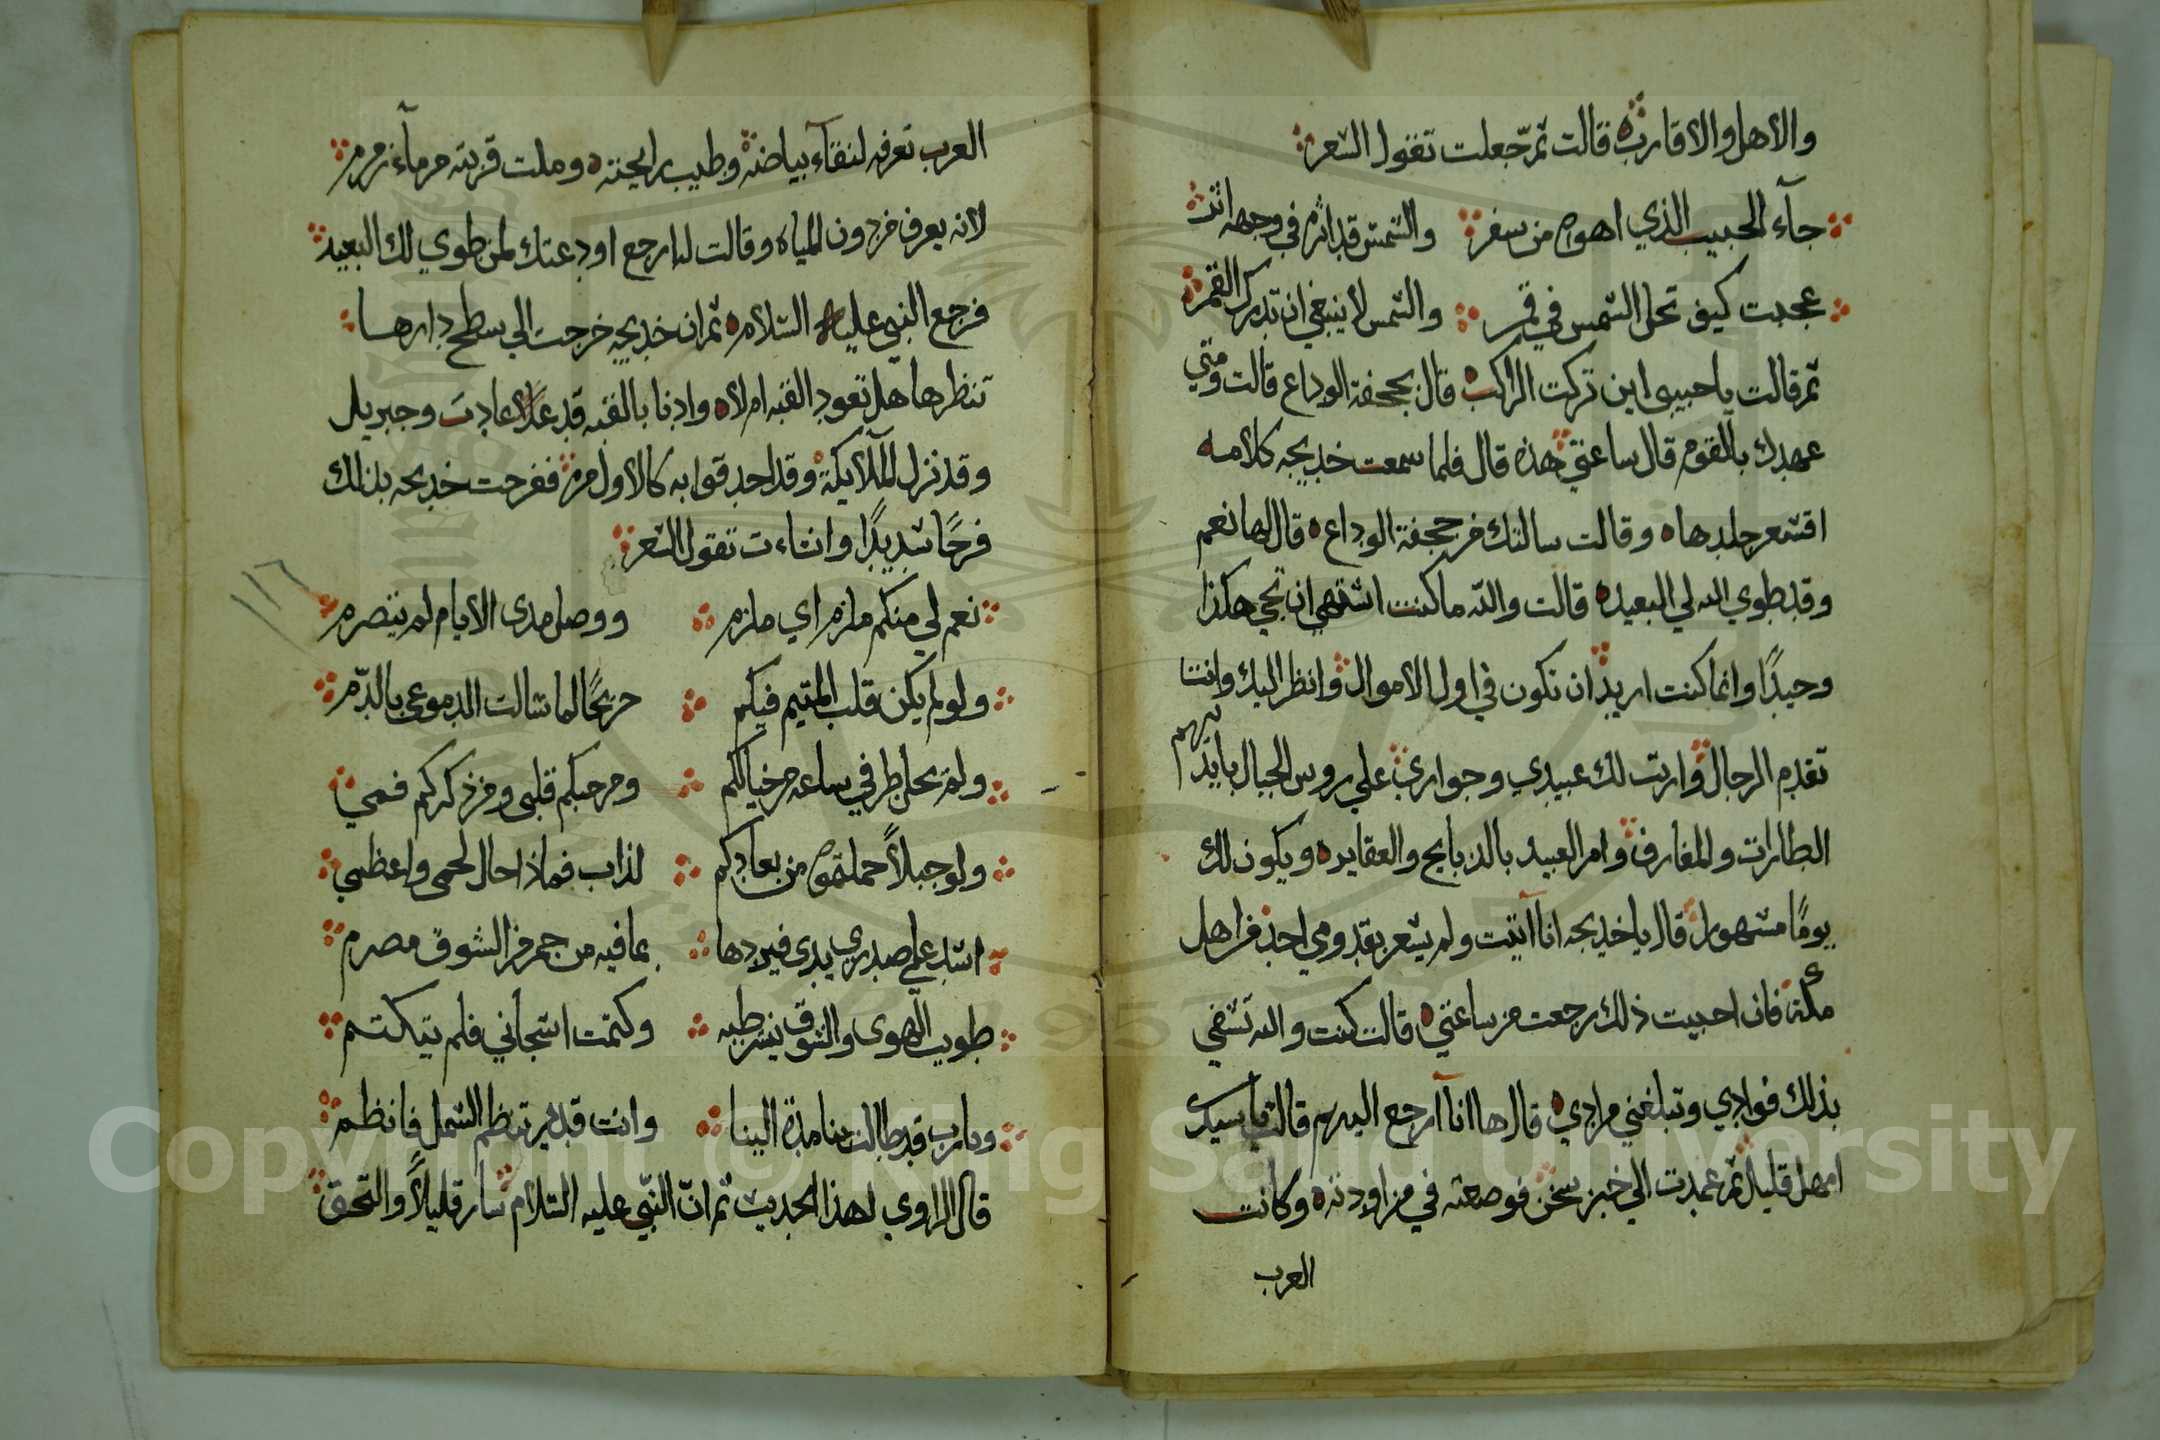 والاهل والاقارب قالت ثمّ جعلت تقول الشعر
جآء الحبيب الذي اهوه من سفر والشمس قد اثرم في وجهه اثر
عجبت كيف تحل الشمس في قمر والشمس لا ينبغي ان تدرك القمر
ثم قالت يا حبيبى اين تركت الراكب قال بجحفة الوداع قالت ومتي
عهدك بالقوم قال ساعتي هذه قال فلما سمعت خديجه كلامه
اقشعر جلدها وقالت سالتك من جحفة الوداع قال لها نعم
وقد طوي الله لي البعيد قالت والله ما كنت اشتهي ان تجي هكذا
وحيدًا وانما كنت اريد ان تكون في اول الاموال وانظر اليك وانت
تقدم الرجال وارتب لك عبيدي وجواري علي روس الجبال بايديهم
الطارات والمعارف وامر العبيد بالذبايح والعقاير ويكون لك
يومًا مشهورا قال يا خديجه انا آتيت ولم يشعر بقدومي احد من اهل
مكة فان احببت ذلك رجعت من ساعتي قالت كنت والله تشفي
بذلك فوادي وتبلغني مرادي قال لها انآ ارجع اليهم قالت يا سيدى
امهل قليلا ثم عمدت الي خبز سخن فوضعته في مزاودته وكانت
العرب
العرب تعرفه لنقآء بياضه وطيب رايحته وملت قربته من مآء زمزم
لانه يعرف من دون المياه وقالت له ارجع اودعتك لمن طوي لك البعيد
فرجع النبي عليه السلام ثم ان خديجه خرجت الي سطح دارها
تنظرها هل تعود القبه ام لا واذنا بالقبه قد عادت وجبريل
وقد نزل الملآيكة وقد احدقوا به كالاول مرة ففرحت خديجه بذلك
فرحًا شديدًا وانشاءت تقول الشعر
١١٦
نعم لي منكم ملزم اي ملزم ووصل مدى الايام لم يتصرم
ولو لم يكن قلب المتيم فيكم جريحًا لما سالت الدموع بالدّم
ولم تخل طرفي ساعه من خيالكم ومن حبكم قلبى ومن ذكركم فمي
ولو جبلاً حملتموه من بعادكم لذاب فماذا حال لحمى واعظمي
اشد علي صدري يدى فيردها بما فيه من جمر من الشوق مضرم
طويت الهوى والشوق ينشر طيه وكتمت اشجاني فلم تتكتم
ويا رب قد طالت بنا مدة البينا وانت قدير تنظم الشمل فانظم
قال الراوي لهذا الحديث ثم انّ النبي عليه السلام سار قليلاً والتحق
Copyright © King Saud University